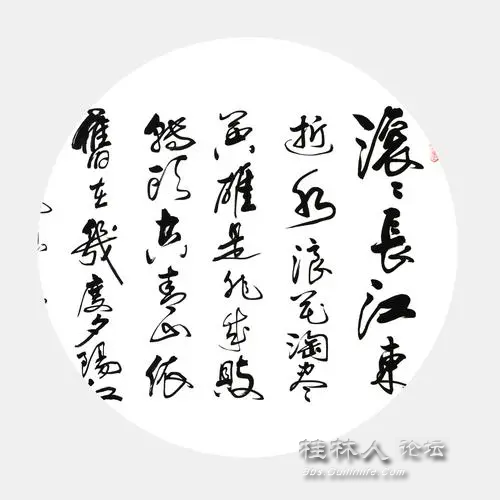 滚〻長江東
逝水浪花淘尽
英雄是非成敗
轉頭空青山依
舊在幾度夕陽红
桂林人 论坛
bbs.guilinlife.com